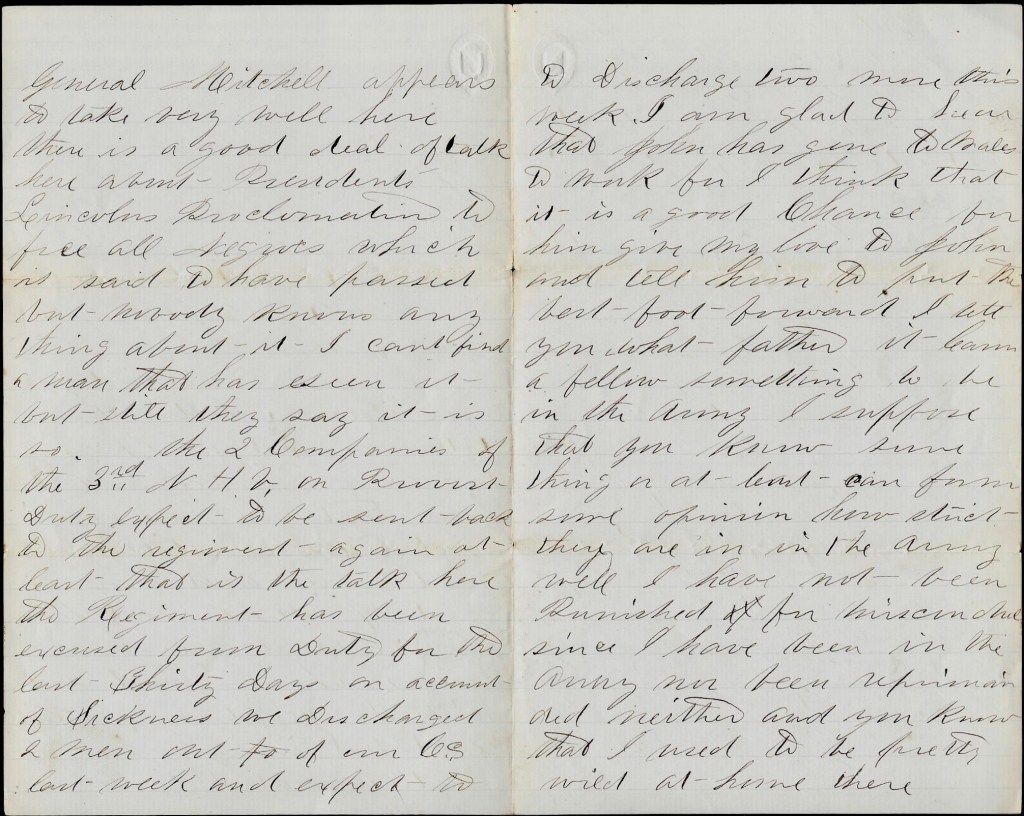 General Mitchell appears
to take very well here
there is a good deal of talk
here about Presidents
Lincolns Proclomation to
free all Negroes which
is said to have passed
but nobody knows any
thing about it I cant find
a man that has eseen it
but still they say it is
so. the 2 Companies of
the 3rd N H V, on Provost
Duty expect to be sent back
to the regiment again at
least that is the talk here
the Regiment has been
excused from Duty for the
last Thirty Days on account
of Sickness we Discharged
2 men out to of our Co
last week and expect to
to Discharge two more this
week. I am glad to hear
that John has gone to
to work for I think that
it is a good Chance for
him give my love to John
and tell him to put the
best foot forward I tell
you what father it learn
a fellow something to be
in the Army I suppose
that you know some
thing or at least can form
some opinion how strict
they are in in the Army
well I have not been
Punished for misconduct
since I have been in the
Army nor been repriman
ded neither and you know
that I used to be pretty
wild at home there